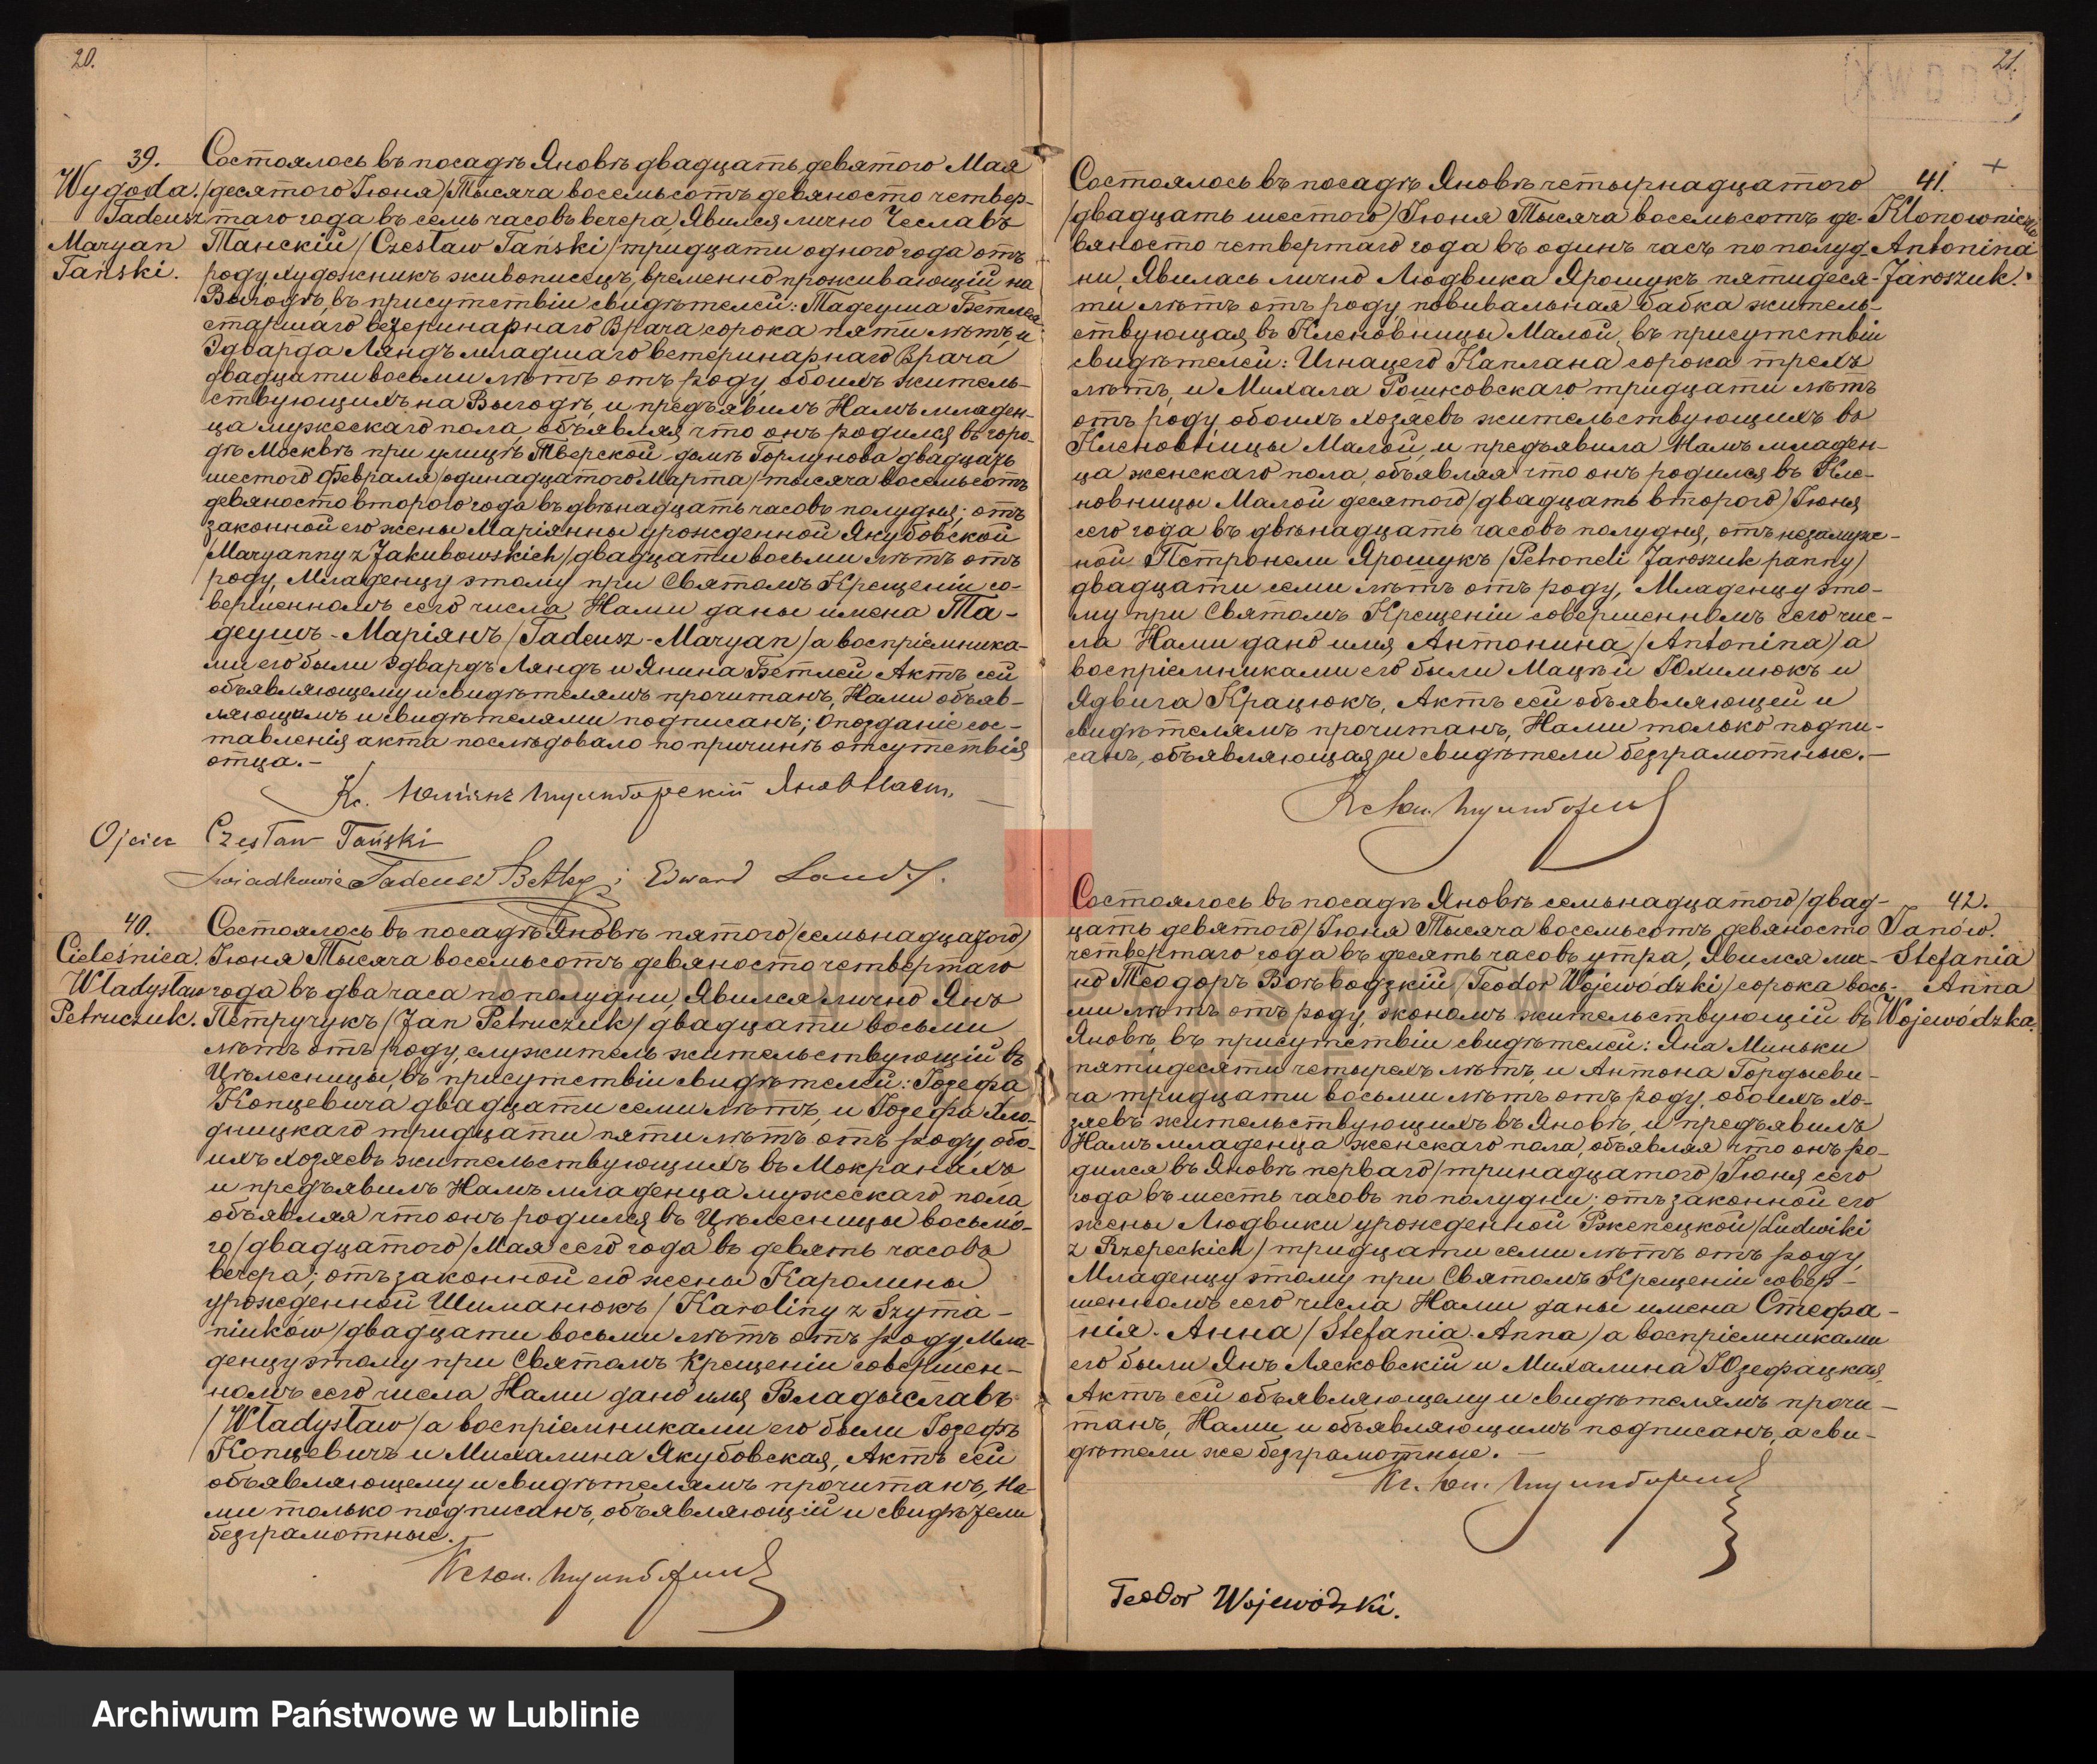 20.
39.
Wygoda.
Tadeusz
Maryan
Tański.
Состоялось въ посадѣ Яновѣ двадцать девятого Мая
/десятого Іюня/ Тысяча восемьсотъ девяносто четвер-
таго года въ семь часовъ вечера, Явился лично Чеславъ
Танскій /Czesław Tański/ тридцати одного года отъ
роду художникъ живописецъ, временно проживающій на
Выгодѣ, въ присутствіи свидѣтелей: Тадеуша Бетлея
старшаго ветеринарнаго Врача сорока пяти лѣтъ, и
Эдварда Ляндъ младшаго ветеринарнаго Врача
двадцати восьми лѣтъ отъ роду, обоихъ житель-
ствующихъ на Выгодѣ, и предъявилъ Намъ младен-
ца мужескаго пола, объявляя что онъ родился въ горо-
дѣ Москвѣ при улицѣ Тверской домѣ Горлунова двадцать
шестого Февраля /одинадцатого Марта/ тысяча восемьсотъ
девяносто второго года въ двѣнадцать часовъ полудня; отъ
законной его жены Маріянны урожденной Якубовской
/Maryanny z Jakubowskich/ двадцати восьми лѣтъ отъ
роду, Младенцу этому при Святомъ Крещеніи со-
вершенномъ сего числа Нами даны имена Та-
деушъ-Маріянъ /Tadeusz-Maryan/ а воспріемника-
ми его были Эдвардъ Ляндъ и Янина Бетлей Актъ сей
объявляющему и свидѣтелямъ прочитанъ, Нами объяв-
ляющимъ и свидѣтелями подписанъ; Опозданіе сос-
тавленія акта послѣдовало по причинѣ отсутствія
отца.-
Кс.
Ojciec Czesław Tański
Swiadkowie Tadeusz Betley i Edward Land.
40.
Cieleśnica.
Władysław
Petruczuk.
Состоялось въ посадѣ Яновѣ пятого /семьнадцатого/
Іюня Тысяча восемьсотъ девяносто четвертаго
года въ два часа по полудни, Явился лично Янъ
Петручукъ /Jan Petruczuk/ двадцати восьми
лѣтъ отъ роду, служитель жительствующій въ
Цѣлесницы, въ присутствіи свидѣтелей: Іозефа
Концевича двадцати семи лѣтъ, и Іозефа Хло-
дницкаго тридцати пяти лѣтъ отъ роду, обо-
ихъ хозяевъ жительствующихъ въ Мокранахъ
и предъявилъ Намъ младенца мужескаго пола
объявляя что онъ родился въ Цѣлесницы восьмо-
го /двадцатого/ Мая сего года въ девять часовъ
вечера; отъ законной его жены Каролины
урожденной Шиманюкъ /Karoliny z Szyma-
niuków/ двадцати восьми лѣтъ отъ роду, Мла-
денцу этому при Святомъ Крещеніи совершен-
номъ сего числа Нами дано имя Владыславъ
/Władysław/ а воспріемниками его были Іозефъ
Концевичъ и Михалина Якубовская, Актъ сей
объявляющему и свидѣтелямъ прочитанъ, На-
ми только подписанъ, объявляющій и свидѣтели
безграмотные.-
21.
41.
Klonownica
Antonina
Jaroszuk.
Состоялось въ посадѣ Яновѣ четырнадцатого
/двадцать шестого/ Іюня Тысяча восемьсотъ де-
вяносто четвертаго года въ одинъ часъ по полуд-
ни, Явилась лично Людвика Ярошукъ пятидеся-
ти лѣтъ отъ роду, повивальная бабка житель-
ствующая въ Кленовницы Малой, въ присутствіи
свидѣтелей: Игнацего Каплана сорока трехъ
лѣтъ, и Михала Рошковскаго тридцати лѣтъ
отъ роду обоихъ хозяевъ жительствующихъ въ
Кленовницы Малой, и предъявила Намъ младен-
ца женскаго пола, объявляя что онъ родился въ Кле-
новницы Малой десятого /двадцать второго/ Іюня
сего года въ двѣнадцать часовъ полудня, отъ незамуж-
ной Петронели Ярошукъ /Petroneli Jaroszuk panny/
двадцати семи лѣтъ отъ роду, Младенцу это-
му при Святомъ Крещеніи совершенномъ сего чис-
ла Нами дано имя Антонина /Antonina/ а
воспріемниками его были Мацѣй Юхимюкъ и
Ядвига Крацюкъ, Актъ сей объявляющей и
свидѣтелямъ прочитанъ, Нами только подпи-
санъ, объявляющая и свидѣтели безграмотные.-
42.
Janów.
Stefania
Anna
Wojewódzka.
Состоялось въ посадѣ Яновѣ семьнадцатого /двад-
цать девятого/ Іюня Тысяча восемьсотъ девяносто
четвертаго года въ десять часовъ утра, Явился лич-
но Теодоръ Воѣводзкій /Teodor Wojewódzki/ сорока вось-
ми лѣтъ отъ роду, экономъ жительствующій въ
Яновѣ, въ присутствіи свидѣтелей: Яна Миньки
пятидесяти четырехъ лѣтъ, и Антона Гордыеви-
ча тридцати восьми лѣтъ отъ роду, обоихъ хо-
зяевъ жительствующихъ въ Яновѣ, и предъявилъ
Намъ младенца женскаго пола, объявляя что онъ ро-
дился въ Яновѣ перваго /тринадцатого/ Іюня сего
года въ шесть часовъ по полудни; отъ законной его
жены Людвики урожденной Ржепецкой /Ludwiki
z Rzepeckich/ тридцати семи лѣтъ отъ роду,
Младенцу этому при Святомъ Крещеніи совер-
шенномъ сего числа Нами даны имена Стефа-
нія-Анна /Stefania-Anna/ а воспріемниками
его были Янъ Лясковскій и Михалина Юзефацкая,
Актъ сей объявляющему и свидѣтелямъ прочи-
танъ, Нами и объявляющимъ подписанъ, а сви-
дѣтели же безграмотные.-
Teodor Wojewódzki.
Archiwum Państwowe w Lublinie